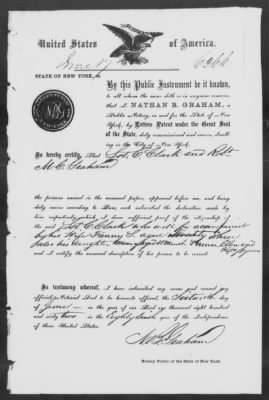 United States of America.
STATE OF NEW YORK, ss.
By this Public Instrument be it known,
to all whom the same doth or may in anywise concern,
that I, NATHAN B. GRAHAM, a
Public Notary, in and for the State of New
York, by Letters Patent under the Great Seal
of the State, duly commissioned and sworn, dwelling
in the City of New York,
Do hereby certify, That Jos. C. Clark and Robt.
M. C. Graham
the persons named in the annexed paper, appeared before me, and
being duly sworn according to Law, each subscribed the declaration made by
him respectively, which I deem sufficient proof of the citizenship of the
said Jos. C. Clark who will be accompanied
by his Wife
and I
notify the annexed description of his person to be correct.
In testimony whereof, I have subscribed my name and caused my
official Notarial Seal to be hereunto affixed, the day
of June in the year of our Lord one thousand eight hundred
and sixty two in the Eighty Sixth year of the Independence
of these United States.
N. B. Graham
Notary Public of the State of New York.